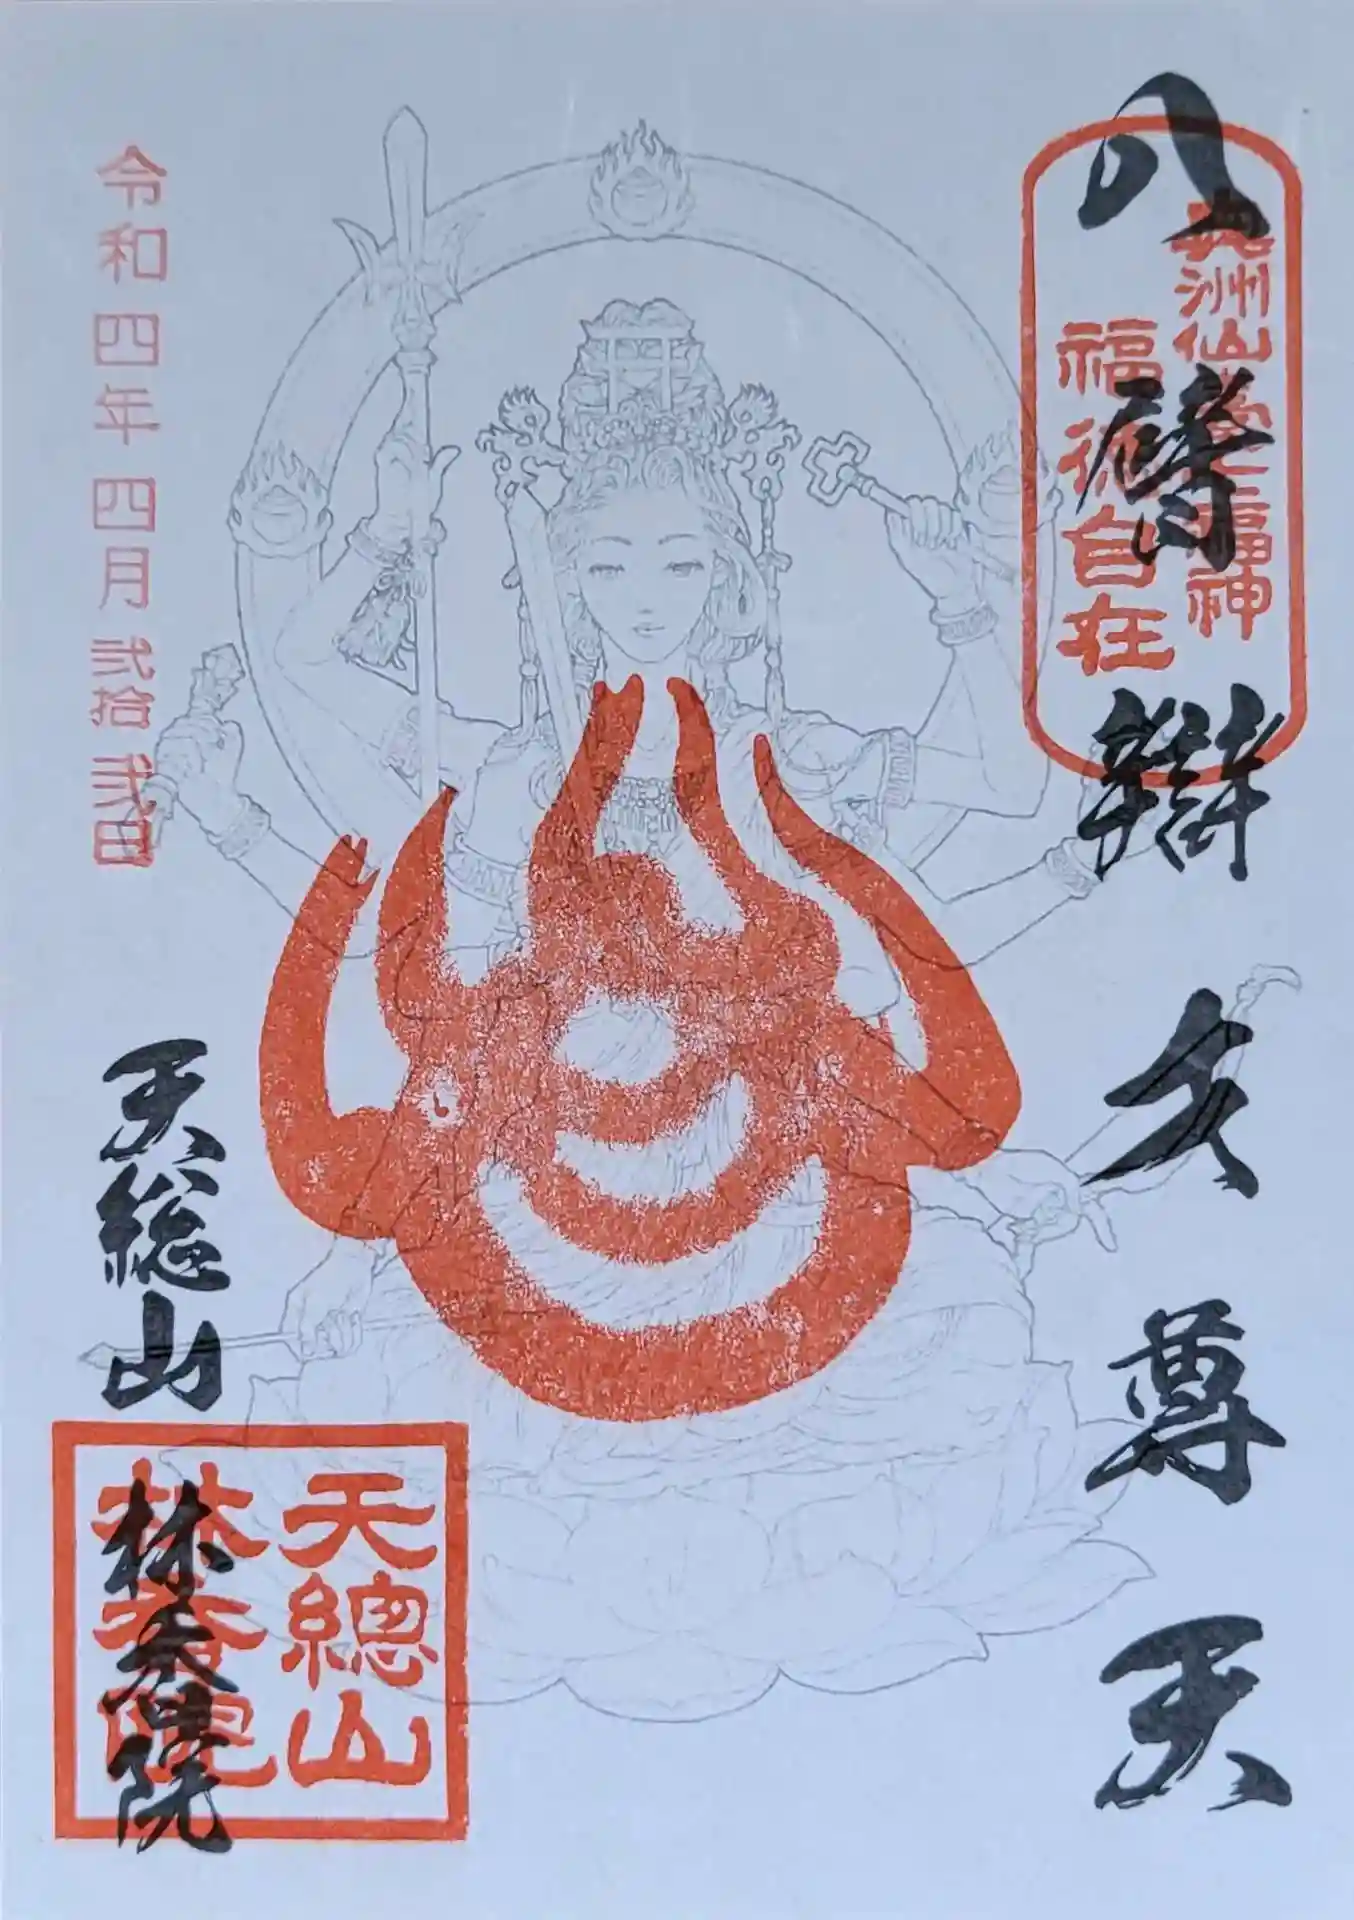 八臂辯才尊天
奥洲仙臺七福神
福徳自在
令和四年四月弐拾弐日
天総山
林香院
天總山
林香院